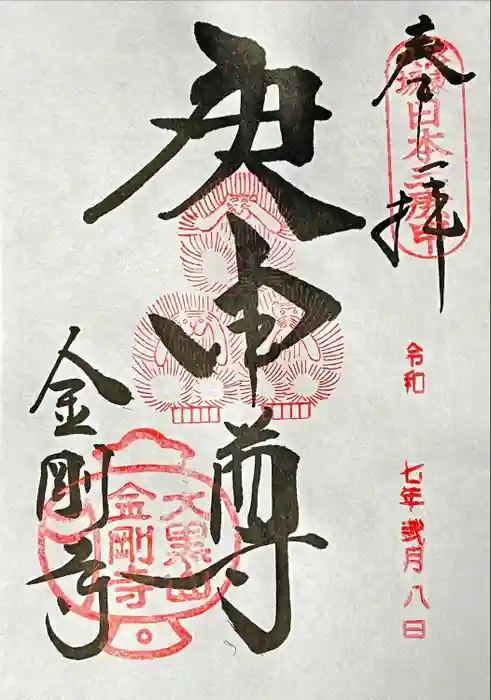 奉拝
日本三庚申
令和 七年弐月八日
庚申尊
金剛寺
大黒山
金剛寺